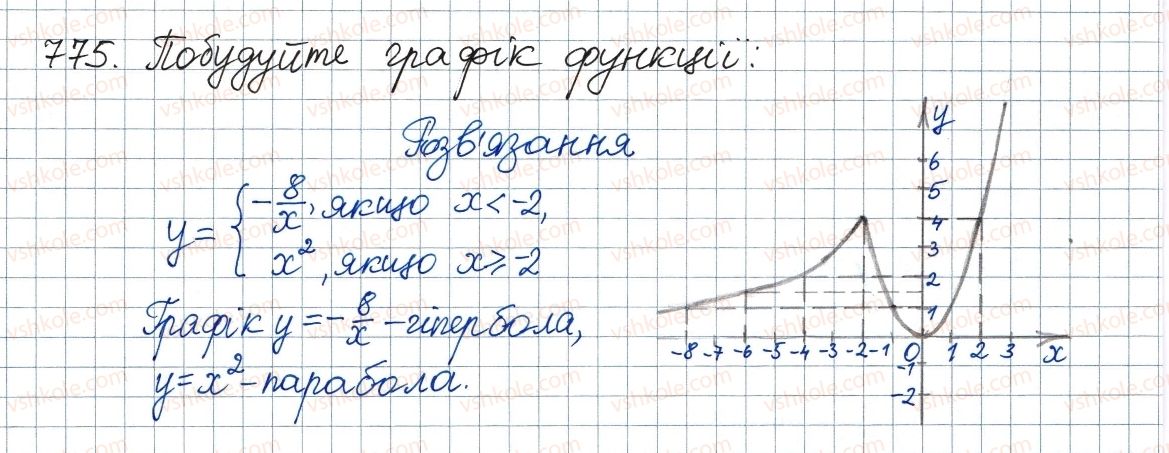 775. Побудуйте графік функції:
Розв'язання
y = { -8/x, якщо x < -2,
x², якщо x ≥ -2
Графік y = -8/x - гіпербола,
y = x² - парабола.
y
6
5
4
3
2
1
-8 -7 -6 -5 -4 -3 -2 -1 0 1 2 3 x
-1
-2
vshkole.com